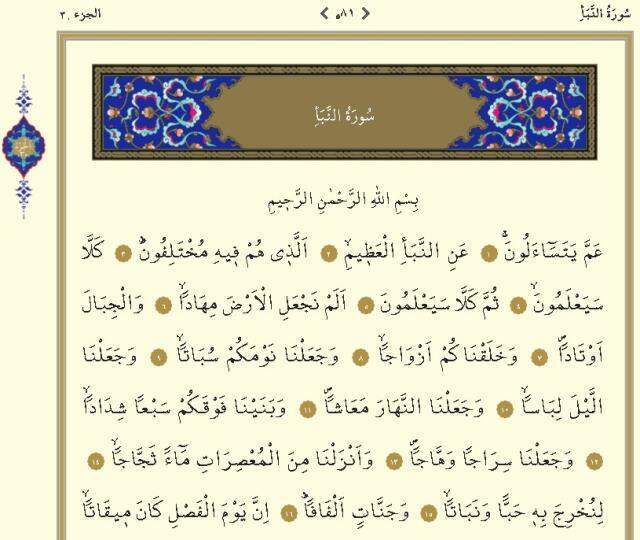 سُورَةُ النَّبَأِ ٥٨١ الجزء ٣٠
سُورَةُ النَّبَأِ
بِسْمِ اللهِ الرَّحْمٰنِ الرَّحِيمِ
عَمَّ يَتَسَٓاءَلُونَۚ ١ عَنِ النَّبَأِ الْعَظِيمِۙ ٢ اَلَّذِي هُمْ فِيهِ مُخْتَلِفُونَۜ ٣ كَلَّا
سَيَعْلَمُونَۙ ٤ ثُمَّ كَلَّا سَيَعْلَمُونَ ٥ اَلَمْ نَجْعَلِ الْاَرْضَ مِهَادًاۙ ٦ وَالْجِبَالَ
اَوْتَادًاۖ ٧ وَخَلَقْنَاكُمْ اَزْوَاجًاۙ ٨ وَجَعَلْنَا نَوْمَكُمْ سُبَاتًاۙ ٩ وَجَعَلْنَا
الَّيْلَ لِبَاسًاۙ ١٠ وَجَعَلْنَا النَّهَارَ مَعَاشًاۖ ١١ وَبَنَيْنَا فَوْقَكُمْ سَبْعًا شِدَادًاۙ
١٢ وَجَعَلْنَا سِرَاجًا وَهَّاجًاۖ ١٣ وَاَنْزَلْنَا مِنَ الْمُعْصِرَاتِ مَٓاءً ثَجَّاجًاۙ ١٤
لِنُخْرِجَ بِهِ حَبًّا وَنَبَاتًاۙ ١٥ وَجَنَّاتٍ اَلْفَافًاۜ ١٦ اِنَّ يَوْمَ الْفَصْلِ كَانَ مِيقَاتًاۙ